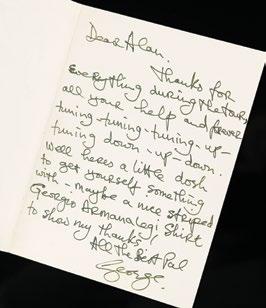 Dear Alan.
Thanks for
everything during the tours
all your help and forever
tuning-tuning-tuning-up-
tuning down-up-down.
Well heres a little dosh
to get yourself something
with - maybe a nice striped
Georgio Armanalegi Shirt
to show my thanks!
All the Best Pal
George.